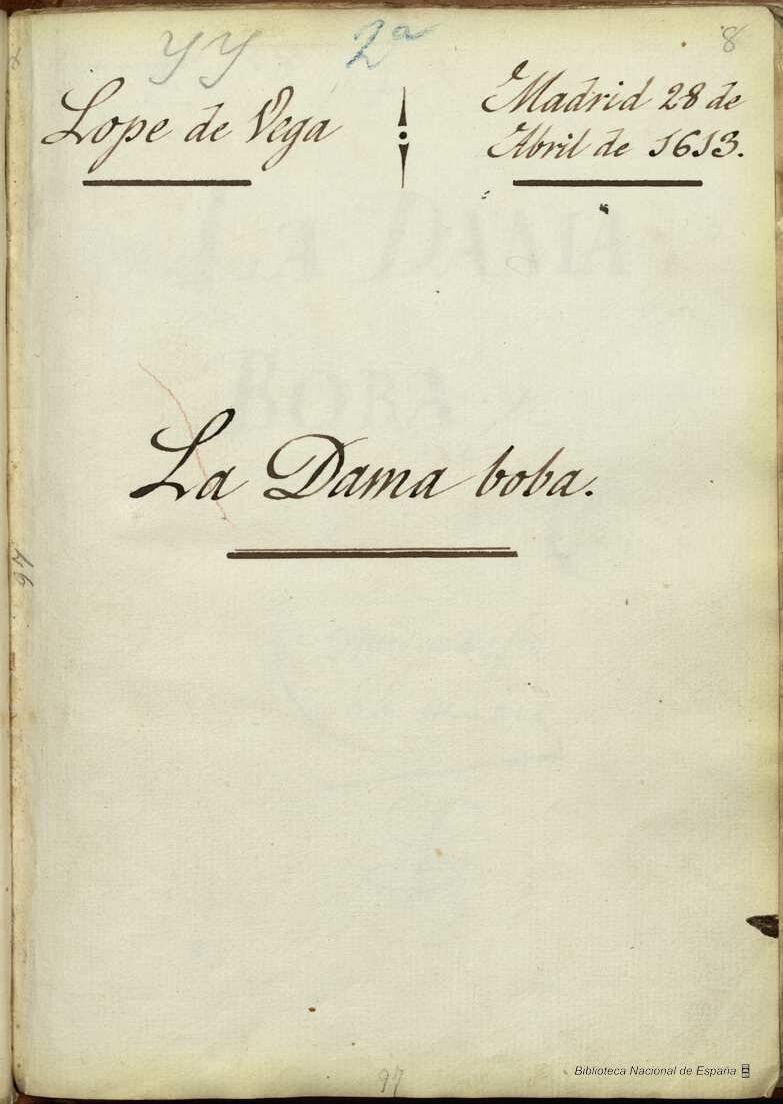 YY 2ª 8
Lope de Vega
Madrid 28 de
Abril de 1613.
La Dama boba.
97
97
Biblioteca Nacional de España